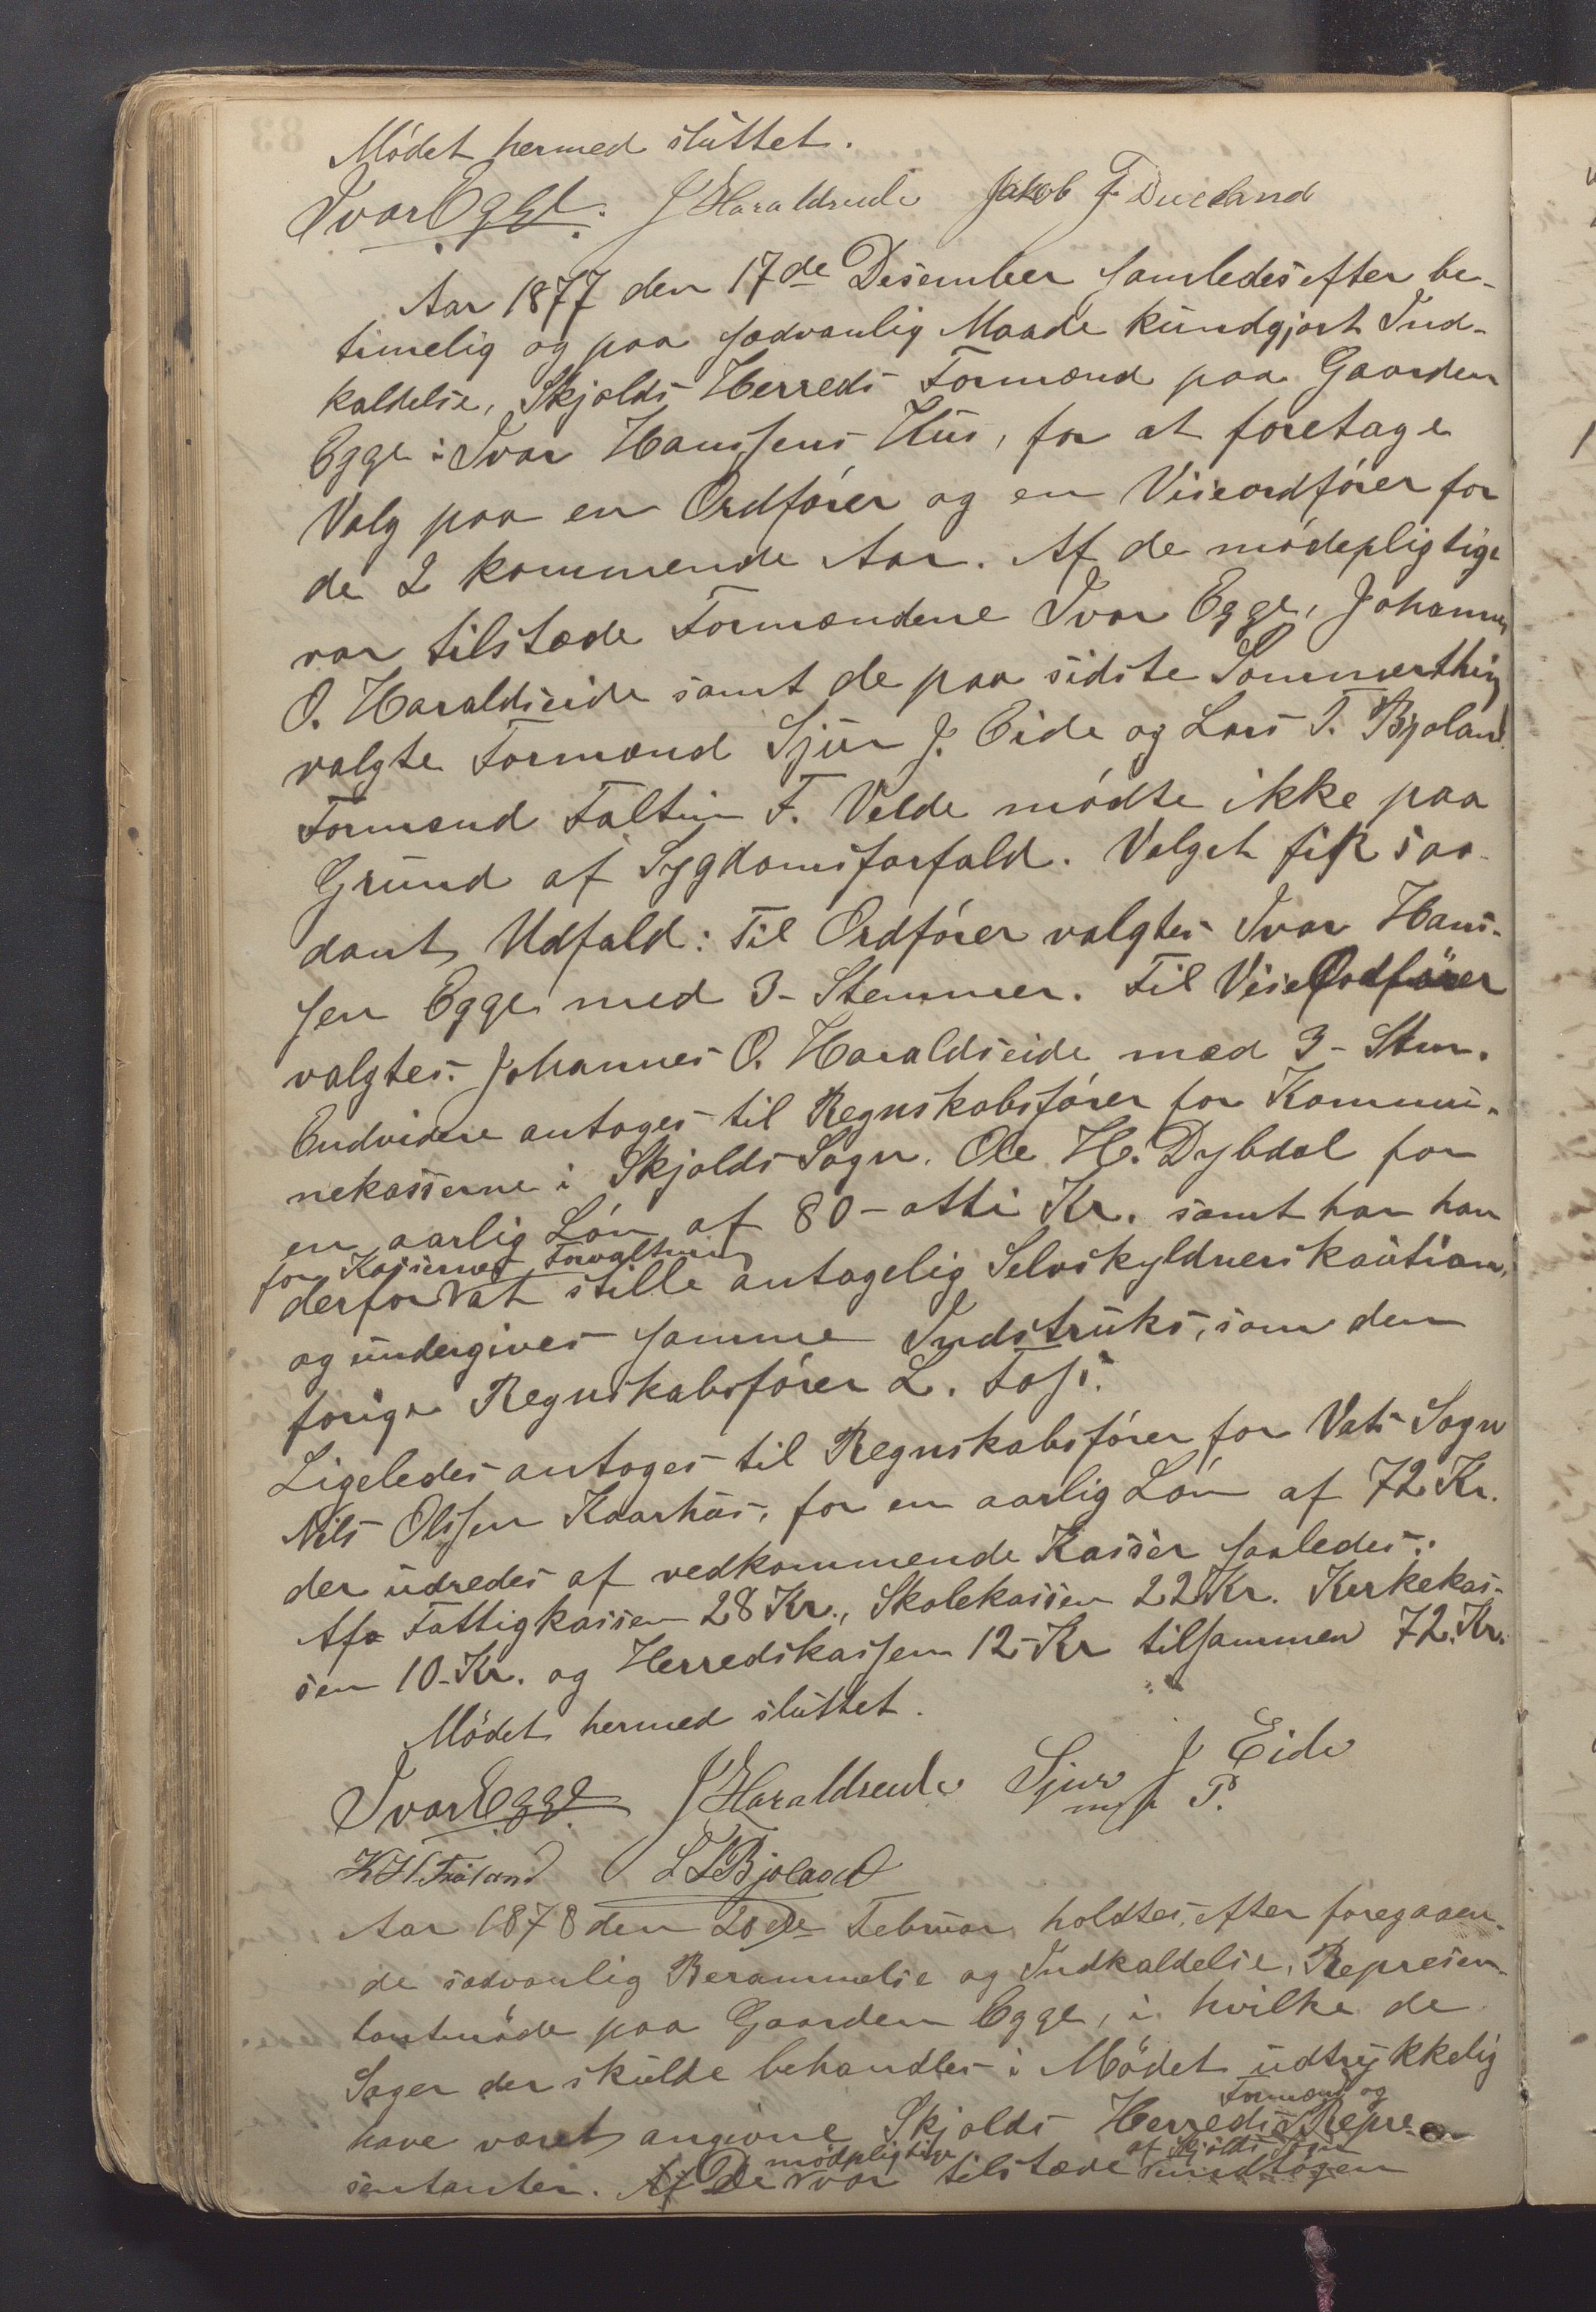 Mödet hermed sluttet.
Ivar Egge. J Haraldseide Jakob F. Dueland
Aar 1877 den 17de Desember samledes efter be-
timelig og paa sædvanlig Maade kundgjort Ind-
kaldelse, Skjolds Herreds Formænd paa Gaarden
Egge i Ivar Hanssens Hus, for at foretage
Valg paa en Ordfører og en Viseordfører for
de 2 kommende Aar. Af de mødepligtige
var tilstæde Formændene Ivar Egge, Johannes
O. Haraldseide samt de paa sidste Sommerthing
valgte Formænd Sjur J. Eide og Lars T. Bjoland.
Formand Faltin F. Velde mødte ikke paa
Grund af Sygdomsforfald. Valget fik saa-
dant Udfald: Til Ordfører valgtes Ivar Hans-
sen Egge med 3- Stemmer. Til Vise Ordfører
valgtes: Johannes O. Haraldseide med 3- Stm.
Endvidere antoges til Regnskabsfører for Kommu-
nekasserne i Skjolds Sogn. Ole H. Dybdal for
en aarlig Løn af 80- otti Kr. samt har han
for Kassernes Forvaltning
derfor at stille antagelig Selvskyldnerskaution,
og undergives samme Indstruks, som den
forige Regnskabsfører L. Foss.
Ligeledes antoges til Regnskabsfører for Vats Sogn
Nils Olssen Kaarhus, for en aarlig Løn af 72 Kr.
der udredes af vedkommende Kasser saaledes:
Af Fattigkassen 28 Kr., Skolekassen 22 Kr. Kirkekas-
sen 10- Kr. og Herredskassen 12- Kr tilsammen 72. Kr.
Mödet hermed sluttet.
Ivar Egge J Haraldseide Sjur J Eide
m f P.
L T Bjoland
Aar 1878 den 20de Februar holdtes, efter foregaaen-
de sædvanlig Berammelse og Indkaldelse, Represen-
tantmöde paa Gaarden Egge, i hvilke de
Sager der skulde behandles i Mödet udtrykkelig
Formænd og
have været angivne Skjolds Herreds Repre-
mødpligtige af Skjolds Sogn
sentanter. Af De var tilstæde undtagen